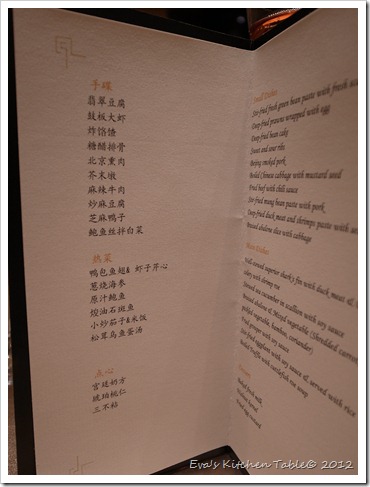 手碟
翡翠豆腐
鼓板大虾
炸饹馇
糖醋排骨
北京熏肉
芥末墩
麻辣牛肉
炒麻豆腐
芝麻鸭子
鲍鱼丝拌白菜
热菜
鸭包鱼翅& 虾子芹心
葱烧海参
原汁鲍鱼
烩油石斑鱼
小炒茄子&米饭
松茸乌鱼蛋汤
点心
宫廷奶方
琥珀桃仁
三不粘
Small Dishes
Stir-fried fresh green bean paste with fresh
Deep-fried prawns wrapped with egg
Deep-fried bean cake
Sweet and sour ribs
Beijing smoked pork
Boiled Chinese cabbage with mustard seed
Fried beef with chili sauce
Stir-fried mung bean paste with pork
Deep-fried duck meat and shrimps paste with
Braised abalone slice with cabbage
Main Dishes
superior shark's fin with duck meat &
celery with shrimp roe
sea cucumber in scallion with soy sauce
Braised abalone & Mixed vegetable (Shredded
pickled vegetable, bamboo, coriander)
Fried grouper with soy sauce
Stir-fried eggplant with soy sauce & served with rice
Boiled Truffle with cuttlefish roe soup
fresh milk
Fried egg custard
Eva's Kitchen Table© 2012